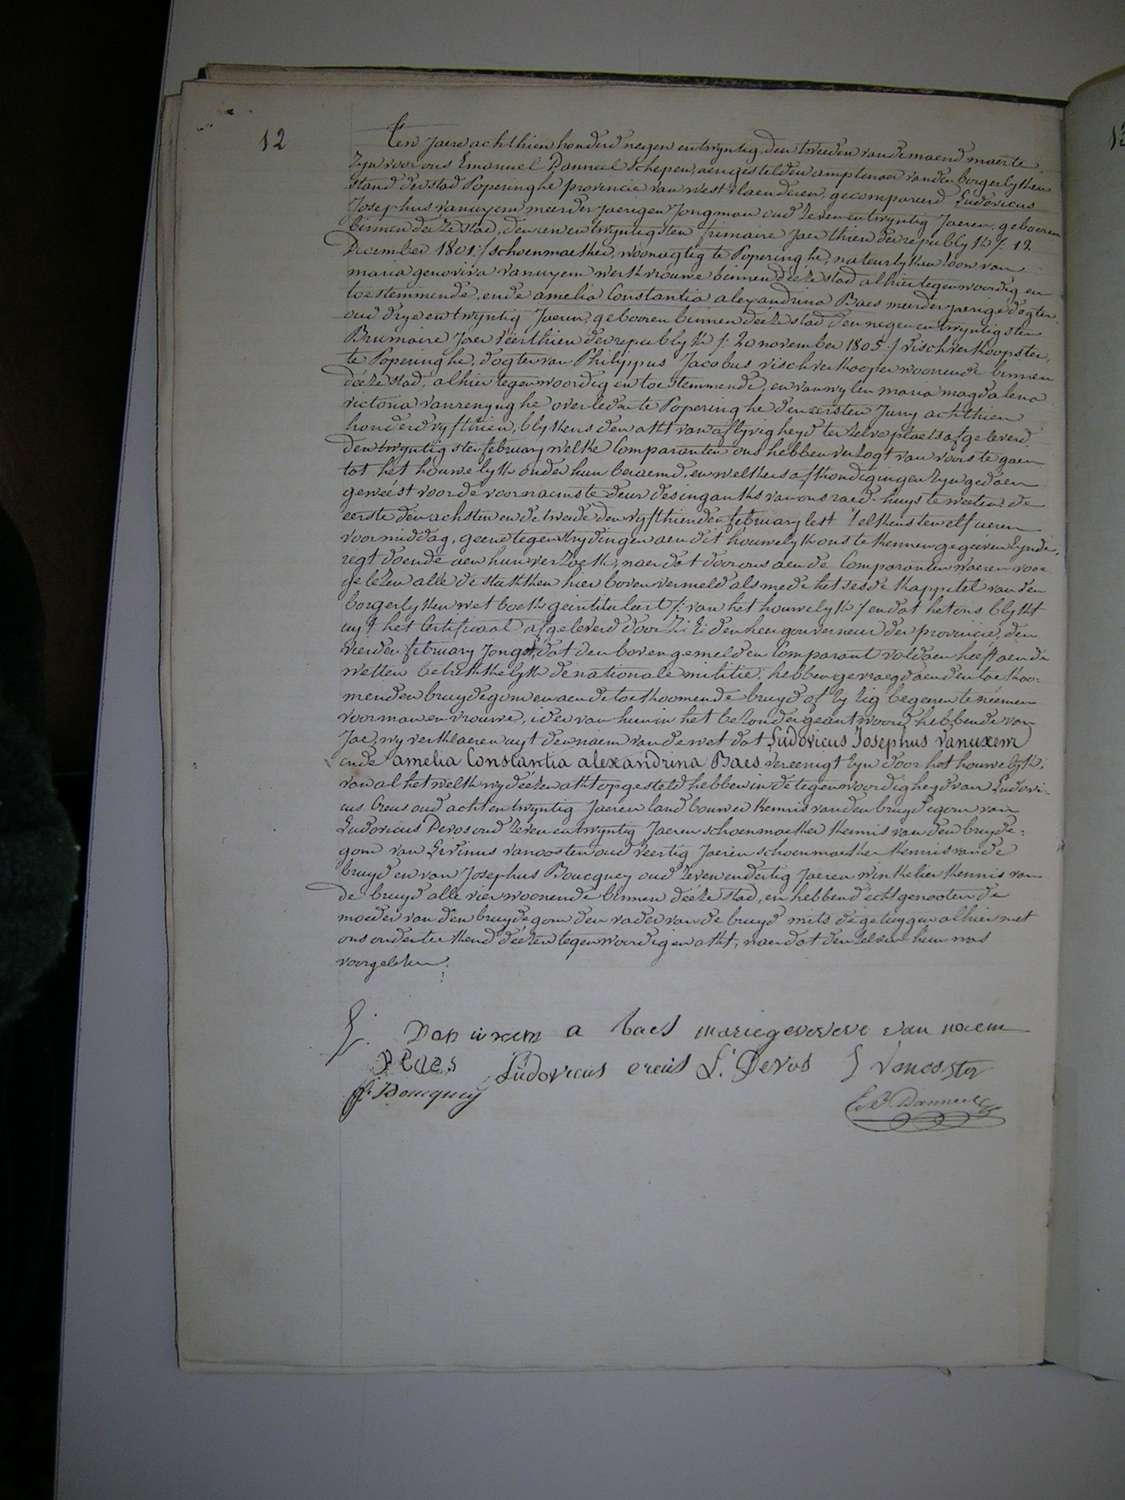 12
Ten Jaere achthien honderd negen entwyntig den tweeden vandemaend maerte
zyn voor ons Emanuel Danneel Schepen, aengestelden amptenaer vanden borgerlyken
stand der stad Poperinghe provincie van westvlaenderen, gecompareerd Ludovicus
Josephus vanuxem meerderjaerigen Jongman oud zeven en twyntig Jaeren, geboren
binnen deéze stad, den een en twyntigsten frimaire Jaer thien der republyk /: 12
December 1801 :/ schoenmaeker, woonagtig te Poperinghe, natuerlyken zoon van
maria genoviva vanuxem werkvrouwe binnen deéze stad alhier tegenwoordig en
toestemmende, ende amelia Constantia alexandrina Baes meerderjaerige dogter
oud drye en twyntig Jaeren, geboren binnen deéze stad den negen en twyntigsten
Brumaire Jaer veerthien der republyk /: 20 november 1805 :/ vischverkoopster,
te Poperinghe, dogter van Philippus Jacobus vischverkooper woonende binnen
deéze stad, alhier tegenwoordig en toestemmende, en van wylen maria magdalena
victoria vanrenynghe overleden te Poperinghe den eersten Juny achthien
honderd vyfthien, blykens den akt van aflyvigheyd ter zelve plaets afgeleverd
den twyntigsten february welke Comparanten ons hebben verzogt van voors te gaen
tot het houwelyk onder hun beraemd, en welkers afkondigingen zyn gedaen
geweést voor de voornaemste deur des inganks van ons raed-huys te weeten: de
eerste den achsten en de tweede den vyfthienden february lest telkens ten elf ueren
voormiddag, geene tegenstrydingen aen dit houwelyk ons te kennen gegeéven zynde,
regt doende aen hun verzoek, naer dat door ons aen de Comparanten waeren voor
gelezen alle de stukken hier boven vermeld als mede het sesde kappittel van den
borgerlyken wetboek geintituleert /: van het houwelyk :/ en dat het ons blykt
uyt het Certificaat afgeleverd door Z: E: den heer gouverneur der provincie, den
vierden february Jongst, dat den bovengemelden Comparant voldaen heeft aen de
wetten betrekkelyk de nationale militie, hebben gevraegd aen den toekoo-
menden bruydegom en aen de toekoomende bruyd of zy zig begeeren te neémen
voor man en vrouwe, ider van hun in het bezonder geantwoord hebbende van
Jae, wy verklaeren uyt den naem van de wet dat Ludovicus Josephus vanuxem
ende amelia Constantia alexandrina Baes vereenigt zyn door het houwelyk,
van al het welk wy deézen akt opgesteld hebben in de tegenwoordigheyd van Ludovi-
cus Creus oud acht en twyntig Jaeren landbouwer kennis van den bruydegom van
Ludovicus Devos oud zeven en twyntig Jaeren schoenmaeker kennis van den bruyde-
gom van Levinus vanoosten oud veertig Jaeren schoenmaeker kennis van de
bruyd en van Josephus Boucquey oud zeven en dertig Jaeren winkelier kennis van
de bruyd alle vier woonende binnen deéze stad, en hebben d'echtgenooten de
moeder van den bruydegom den vader van de bruyd mits de getuygen alhier met
ons onderteekend deézen tegenwoordigen akt, naer dat den zelven hun was
voorgelezen.
L: Van uxem a baes mariegeneveve van uxem
P Baes Ludovicus creus L. Devos L Vanoosten
J: Boucquey E. Danneel